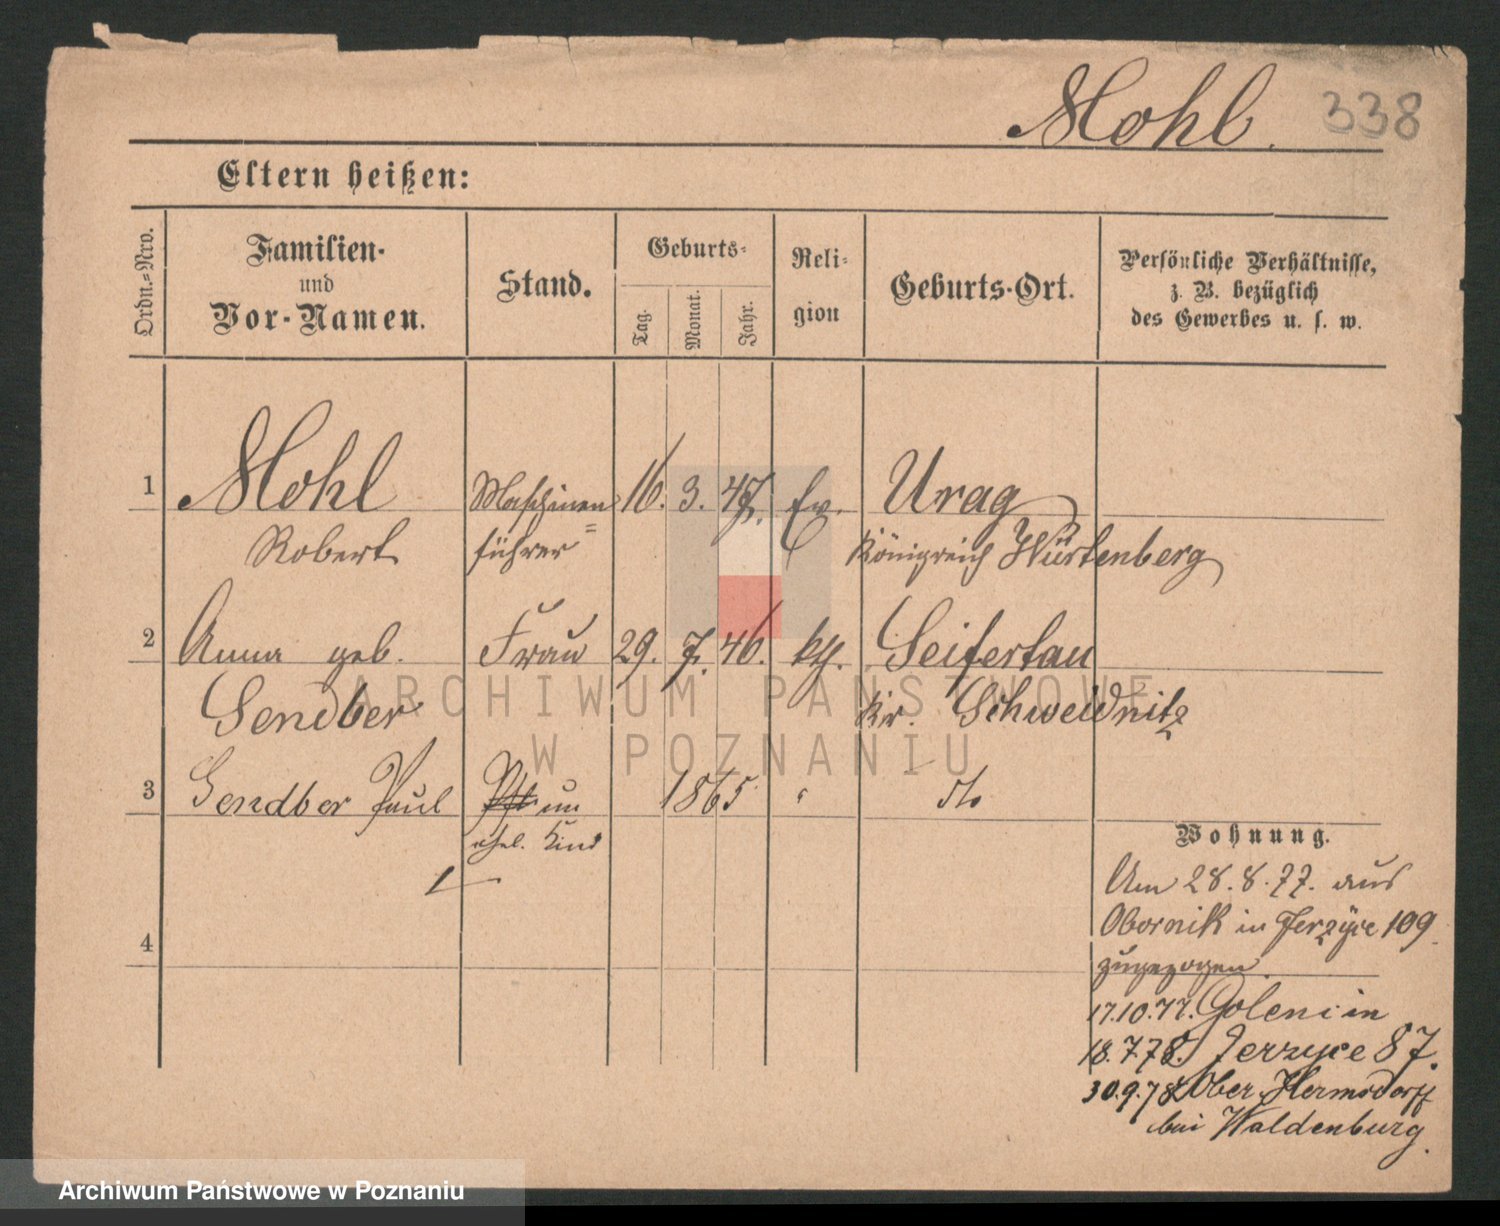 Mohl. 338
Eltern heißen:
Ordn.=Nro.
Familien-
und
Vor-Namen.
Stand.
Geburts-
Tag.
Monat.
Jahr.
Reli-
gion
Geburts-Ort.
Persönliche Verhältnisse,
z. B. bezüglich
des Gewerbes u. s. w.
1 Mohl Maschinen 16. 3. 47. Ev. Urag
Robert führer Königreich Würtenberg
2 Anna geb. Frau 29. 7. 46. kth. Seifertau
Sendber Kr. Schweidnitz
3 Sendber Paul un 1865 " dto
ehel. Kind
Wohnung.
Am 28.8.77. aus
Obornik in Jerzyce 109
zugezogen.
4
17.10.77. Goleni in
18.7.78. Jerzyce 87.
30.9.78 Ober Hermsdorff
bei Waldenburg.
ARCHIWUM PAŃSTWOWE
W POZNANIU
Archiwum Państwowe w Poznaniu